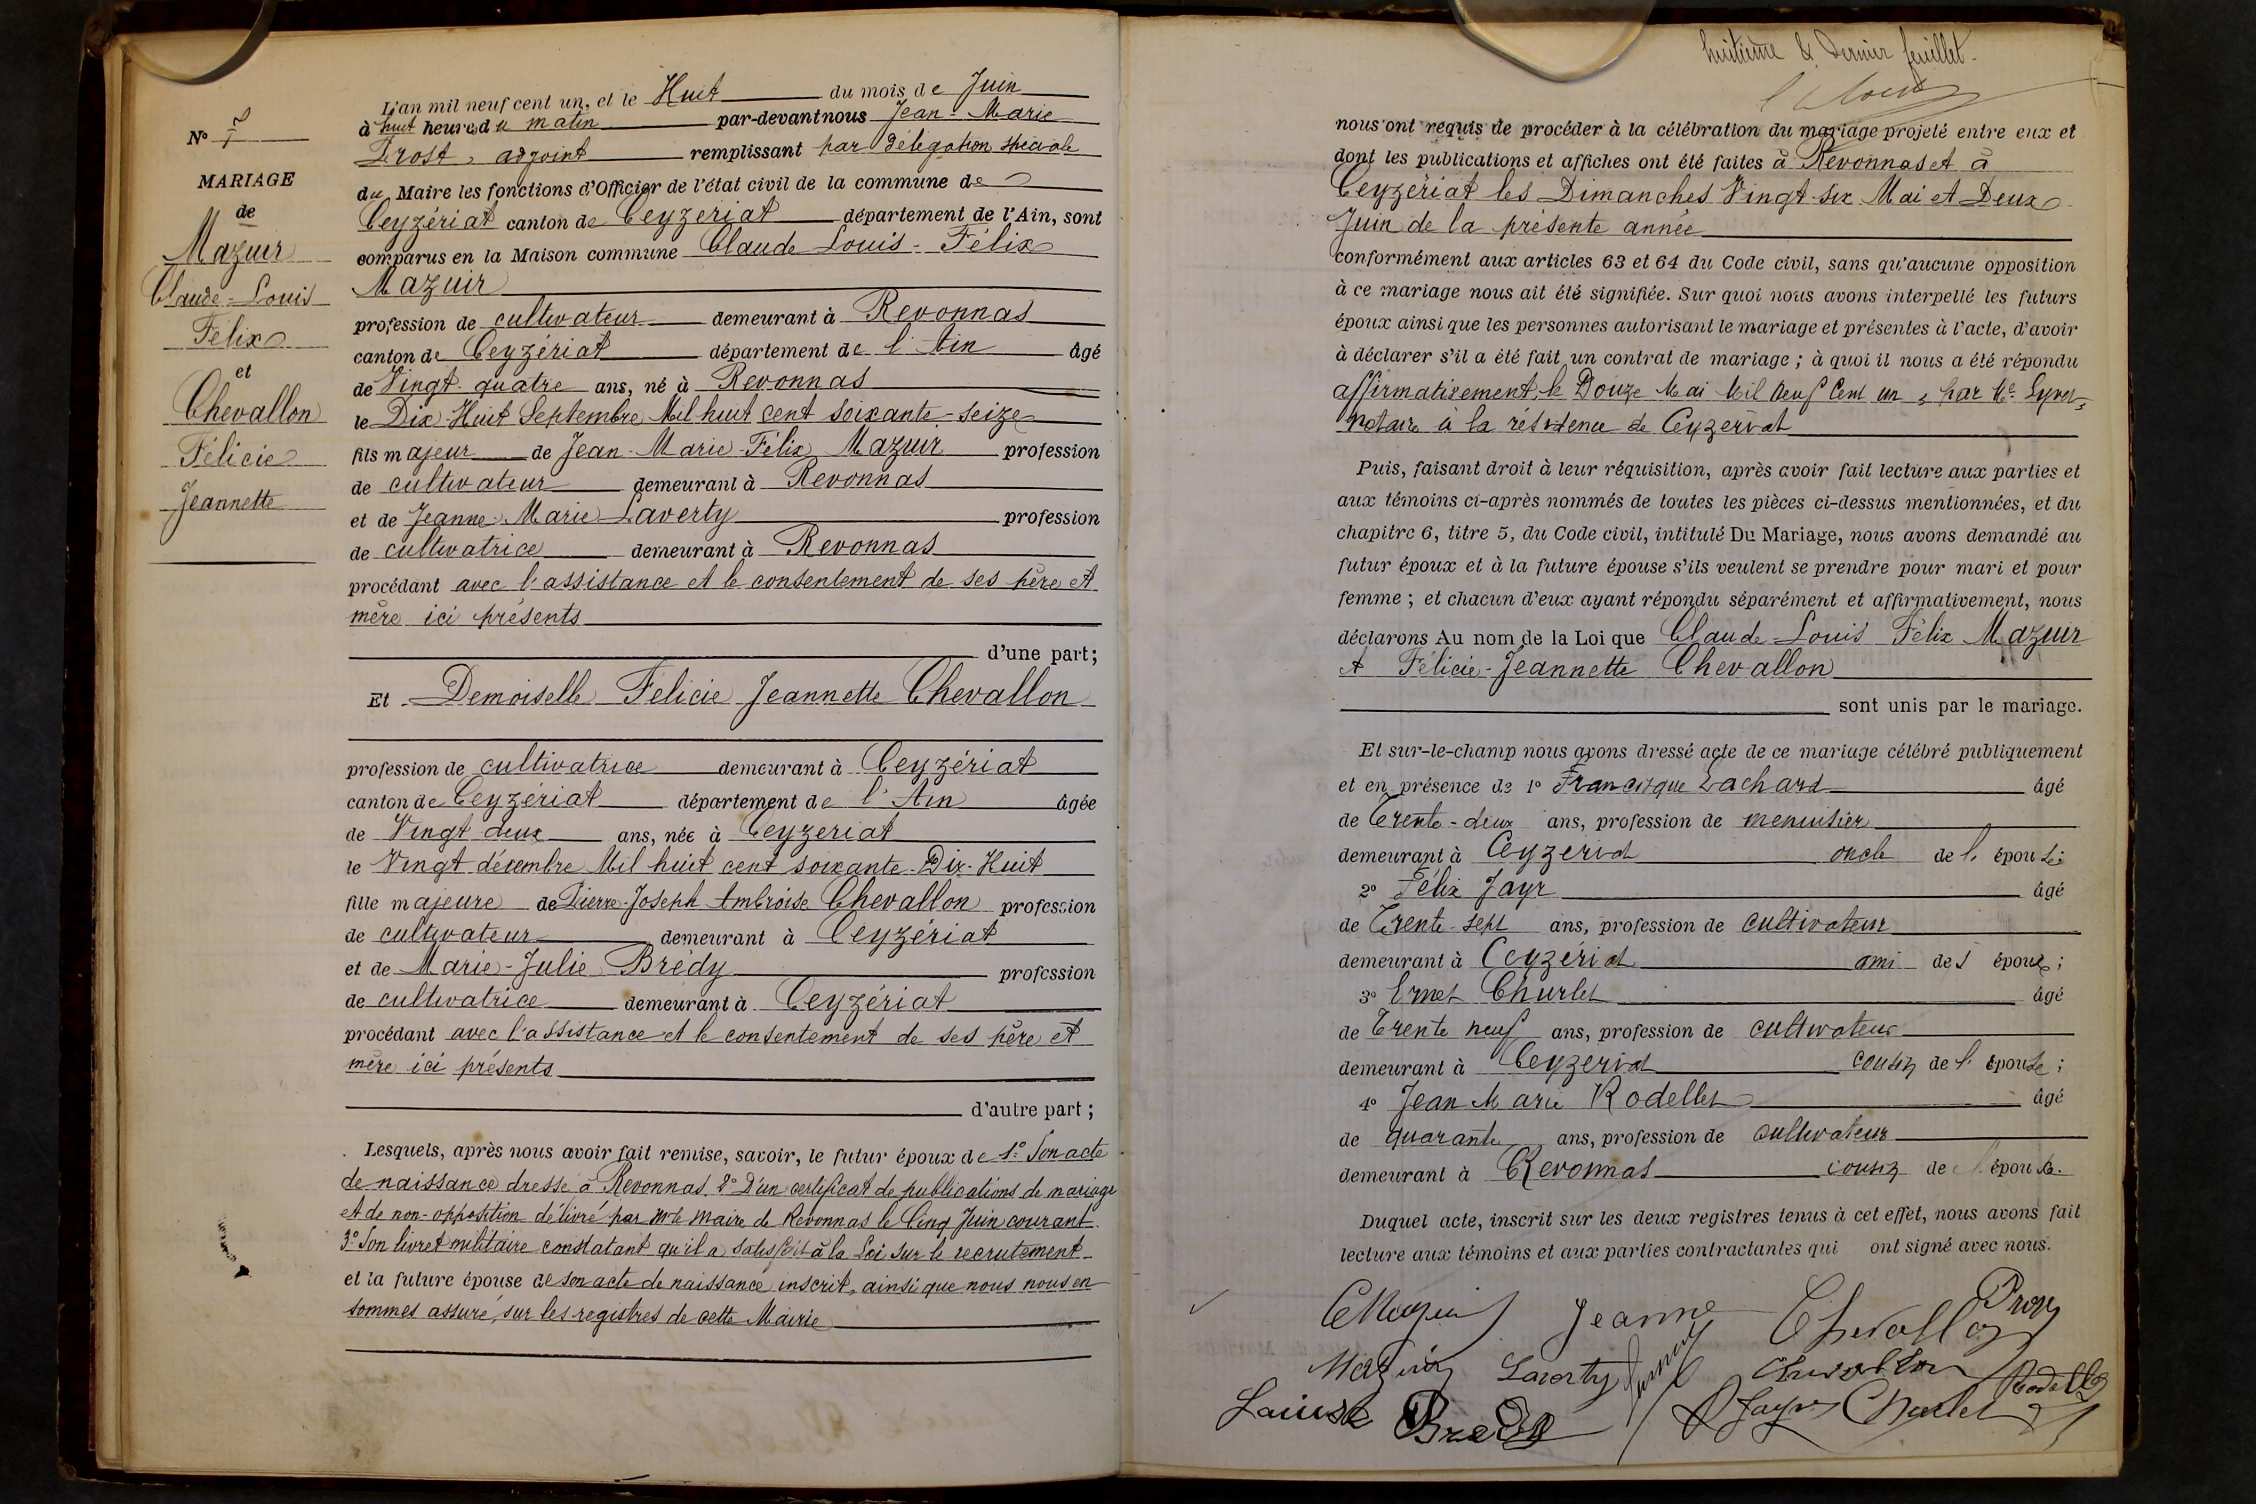 N° 7
MARIAGE
de
Mazuir
Claude-Louis
Félix
et
Chevallon
Félicie
Jeannette
L'an mil neuf cent un, et le Huit du mois de Juin
à huit heures du matin par-devant nous Jean-Marie
Prost, adjoint remplissant par délégation spéciale
du Maire les fonctions d'Officier de l'état civil de la commune de
Ceyzériat canton de Ceyzériat département de l'Ain, sont
comparus en la Maison commune Claude Louis-Félix
Mazuir
profession de cultivateur demeurant à Revonnas
canton de Ceyzériat département de l'Ain âgé
de Vingt-quatre ans, né à Revonnas
le Dix-Huit Septembre Mil huit cent soixante-seize
fils majeur de Jean-Marie-Félix Mazuir profession
de cultivateur demeurant à Revonnas
et de Jeanne-Marie Laverty profession
de cultivatrice demeurant à Revonnas
procédant avec l'assistance et le consentement de ses père et
mère ici présents
d'une part;
Et Demoiselle Félicie Jeannette Chevallon
profession de cultivatrice demeurant à Ceyzériat
canton de Ceyzériat département de l'Ain âgée
de Vingt deux ans, née à Ceyzeriat
le Vingt décembre Mil huit cent soixante-Dix-Huit
fille majeure de Pierre-Joseph Ambroise Chevallon profession
de cultivateur demeurant à Ceyzériat
et de Marie-Julie Brédy profession
de cultivatrice demeurant à Ceyzériat
procédant avec l'assistance et le consentement de ses père et
mère ici présents
d'autre part;
Lesquels, après nous avoir fait remise, savoir, le futur époux de 1° Son acte
de naissance dressé à Revonnas. 2° D'un certificat de publications de mariage
et de non-opposition délivré par Mr le maire de Revonnas le Cinq Juin courant.
3° Son livret militaire constatant qu'il a satisfait à la Loi sur le recrutement
et la future épouse de son acte de naissance inscrit, ainsi que nous nous en
sommes assuré, sur les registres de cette Mairie
huitième & dernier feuillet.
nous ont requis de procéder à la célébration du mariage projeté entre eux et
dont les publications et affiches ont été faites à Revonnas et à
Ceyzériat les Dimanches Vingt-six Mai et Deux
Juin de la présente année
conformément aux articles 63 et 64 du Code civil, sans qu'aucune opposition
à ce mariage nous ait été signifiée. Sur quoi nous avons interpellé les futurs
époux ainsi que les personnes autorisant le mariage et présentes à l'acte, d'avoir
à déclarer s'il a été fait un contrat de mariage; à quoi il nous a été répondu
affirmativement, le Douze Mai Mil neuf Cent un, par Me
notaire à la résidence de Ceyzeriat
Puis, faisant droit à leur réquisition, après avoir fait lecture aux parties et
aux témoins ci-après nommés de toutes les pièces ci-dessus mentionnées, et du
chapitre 6, titre 5, du Code civil, intitulé Du Mariage, nous avons demandé au
futur époux et à la future épouse s'ils veulent se prendre pour mari et pour
femme; et chacun d'eux ayant répondu séparément et affirmativement, nous
déclarons Au nom de la Loi que Claude-Louis Félix Mazuir
et Félicie-Jeannette Chevallon
sont unis par le mariage.
Et sur-le-champ nous avons dressé acte de ce mariage célébré publiquement
et en présence de 1° Francisque Lachard âgé
de Trente-deux ans, profession de menuisier
demeurant à Ceyzeriat oncle de l'épouse;
2° Félix Jayr âgé
de Trente-sept ans, profession de cultivateur
demeurant à Ceyzériat ami des époux;
3° Ernest Churlet âgé
de Trente neuf ans, profession de cultivateur
demeurant à Ceyzeriat cousin de l'épouse;
4° Jean Marie Rodellet âgé
de quarante ans, profession de cultivateur
demeurant à Revonnas cousin de l'épouse.
Duquel acte, inscrit sur les deux registres tenus à cet effet, nous avons fait
lecture aux témoins et aux parties contractantes qui ont signé avec nous.
Jeanne Chevallon
Mazuir Laverty Chevallon
Bredy Jayr Churlet